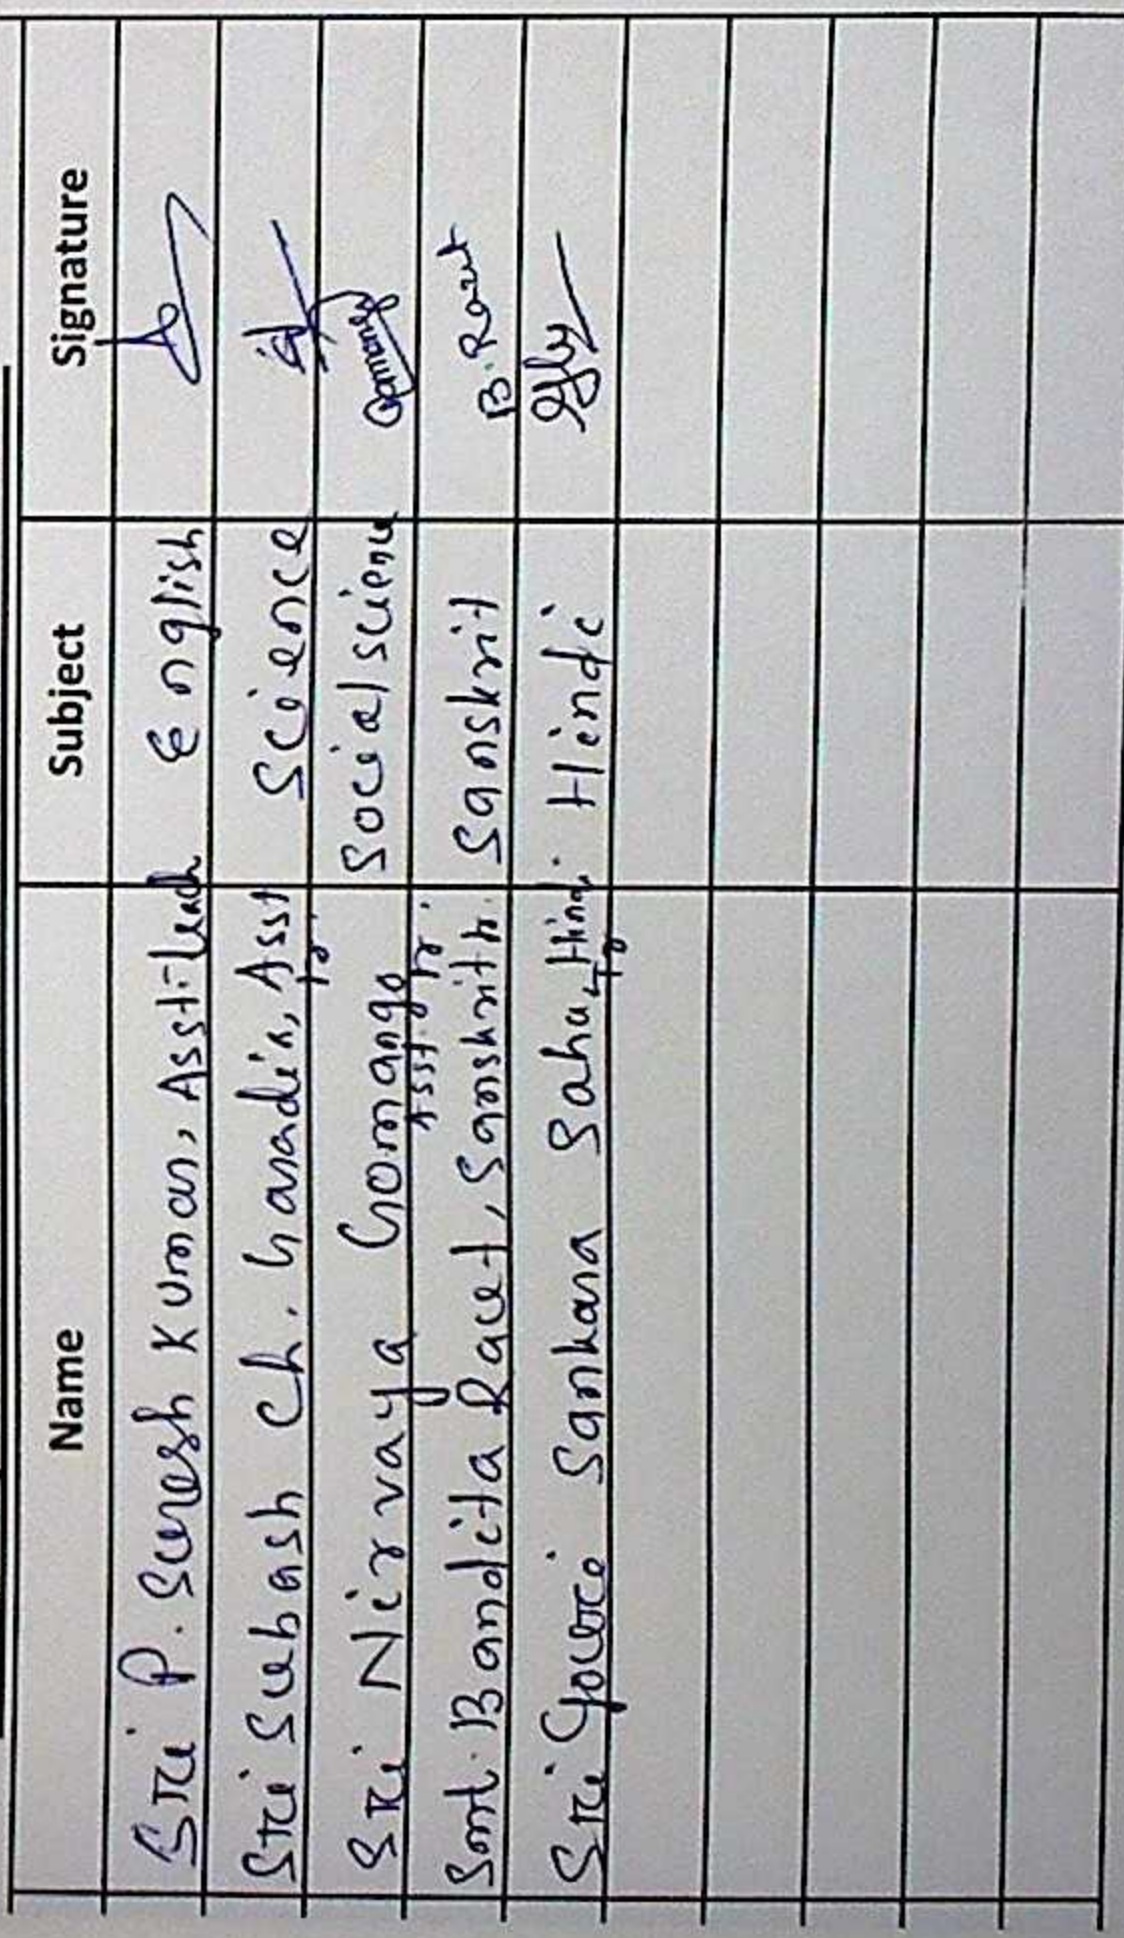 Name Subject Signature
Sri P. Suresh Kumar, Asst. Teach English
Sri Subash Ch. Garadia, Asst Tr. Science
Sri Nirvaya Gomango Asst. Tr. Social science
Smt. Bandita Raut, Sanskrit Tr. Sanskrit B. Rout
Sri Gouri Sankara Sahu, Hindi Tr. Hindi